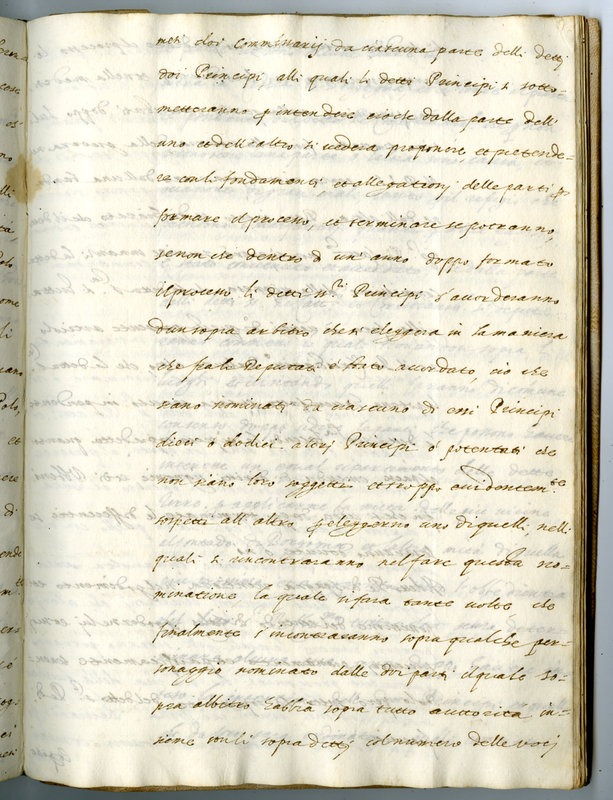 mesi doi Commissarij da ciascuna parte delli detti
doi Principi, alli quali li detti Principi si sotto=
metteranno p intendere ciò che dalla parte dell
uno et dell altro si vedera proponere et pretende=
re con li fondamenti et allegationj delle parti p
formare il processo, et terminare se potranno,
se non che dentro d un' anno doppo formato
il processo li detti SS.ri Principi s' accorderanno
d'un sopra arbitro che si eleggera in la maniera
che fra li Deputati è stato accordato, cio che
siano nominati da ciascuno di essi Principi
dieci o dodici altri Principi ò potentati che
non siano loro soggetti et troppo evidentem.te
sospetti all altro p eleggerno uno di quelli, nelli
quali si incontraranno nel fare questa no=
minatione la quale si farà tante volte che
finalmente s' incontraranno sopra qualche per=
sonaggio nominato dalle doi parti il quale so=
pra arbitro habbia sopra tutto auttorità in=
sieme con li sopradetti al numero delle vocj